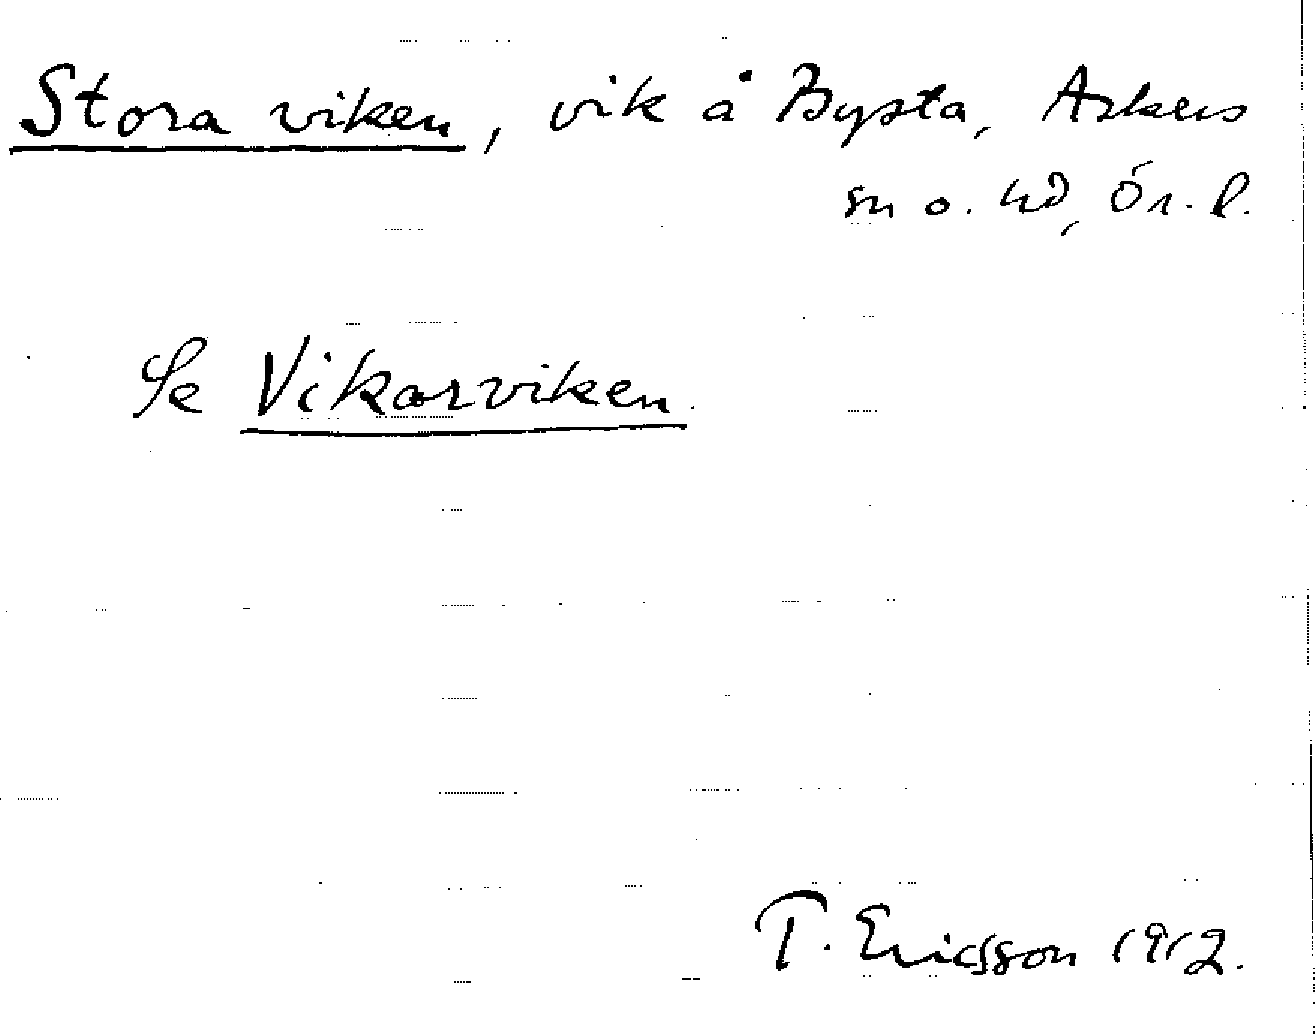 Stora viken, vik å Bysta, Askers
sn o. hd, Ör. l.
Se Vikarviken.
T. Ericsson 1912.